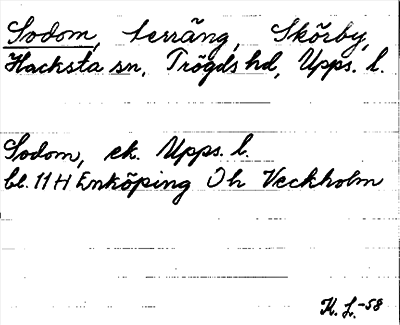 Sodom, terräng, Skörby,
Hacksta sn, Trögds hd, Upps. l.
Sodom, ek. Upps. l.
bl. 11 H Enköping Oh Veckholm
K. L. -58